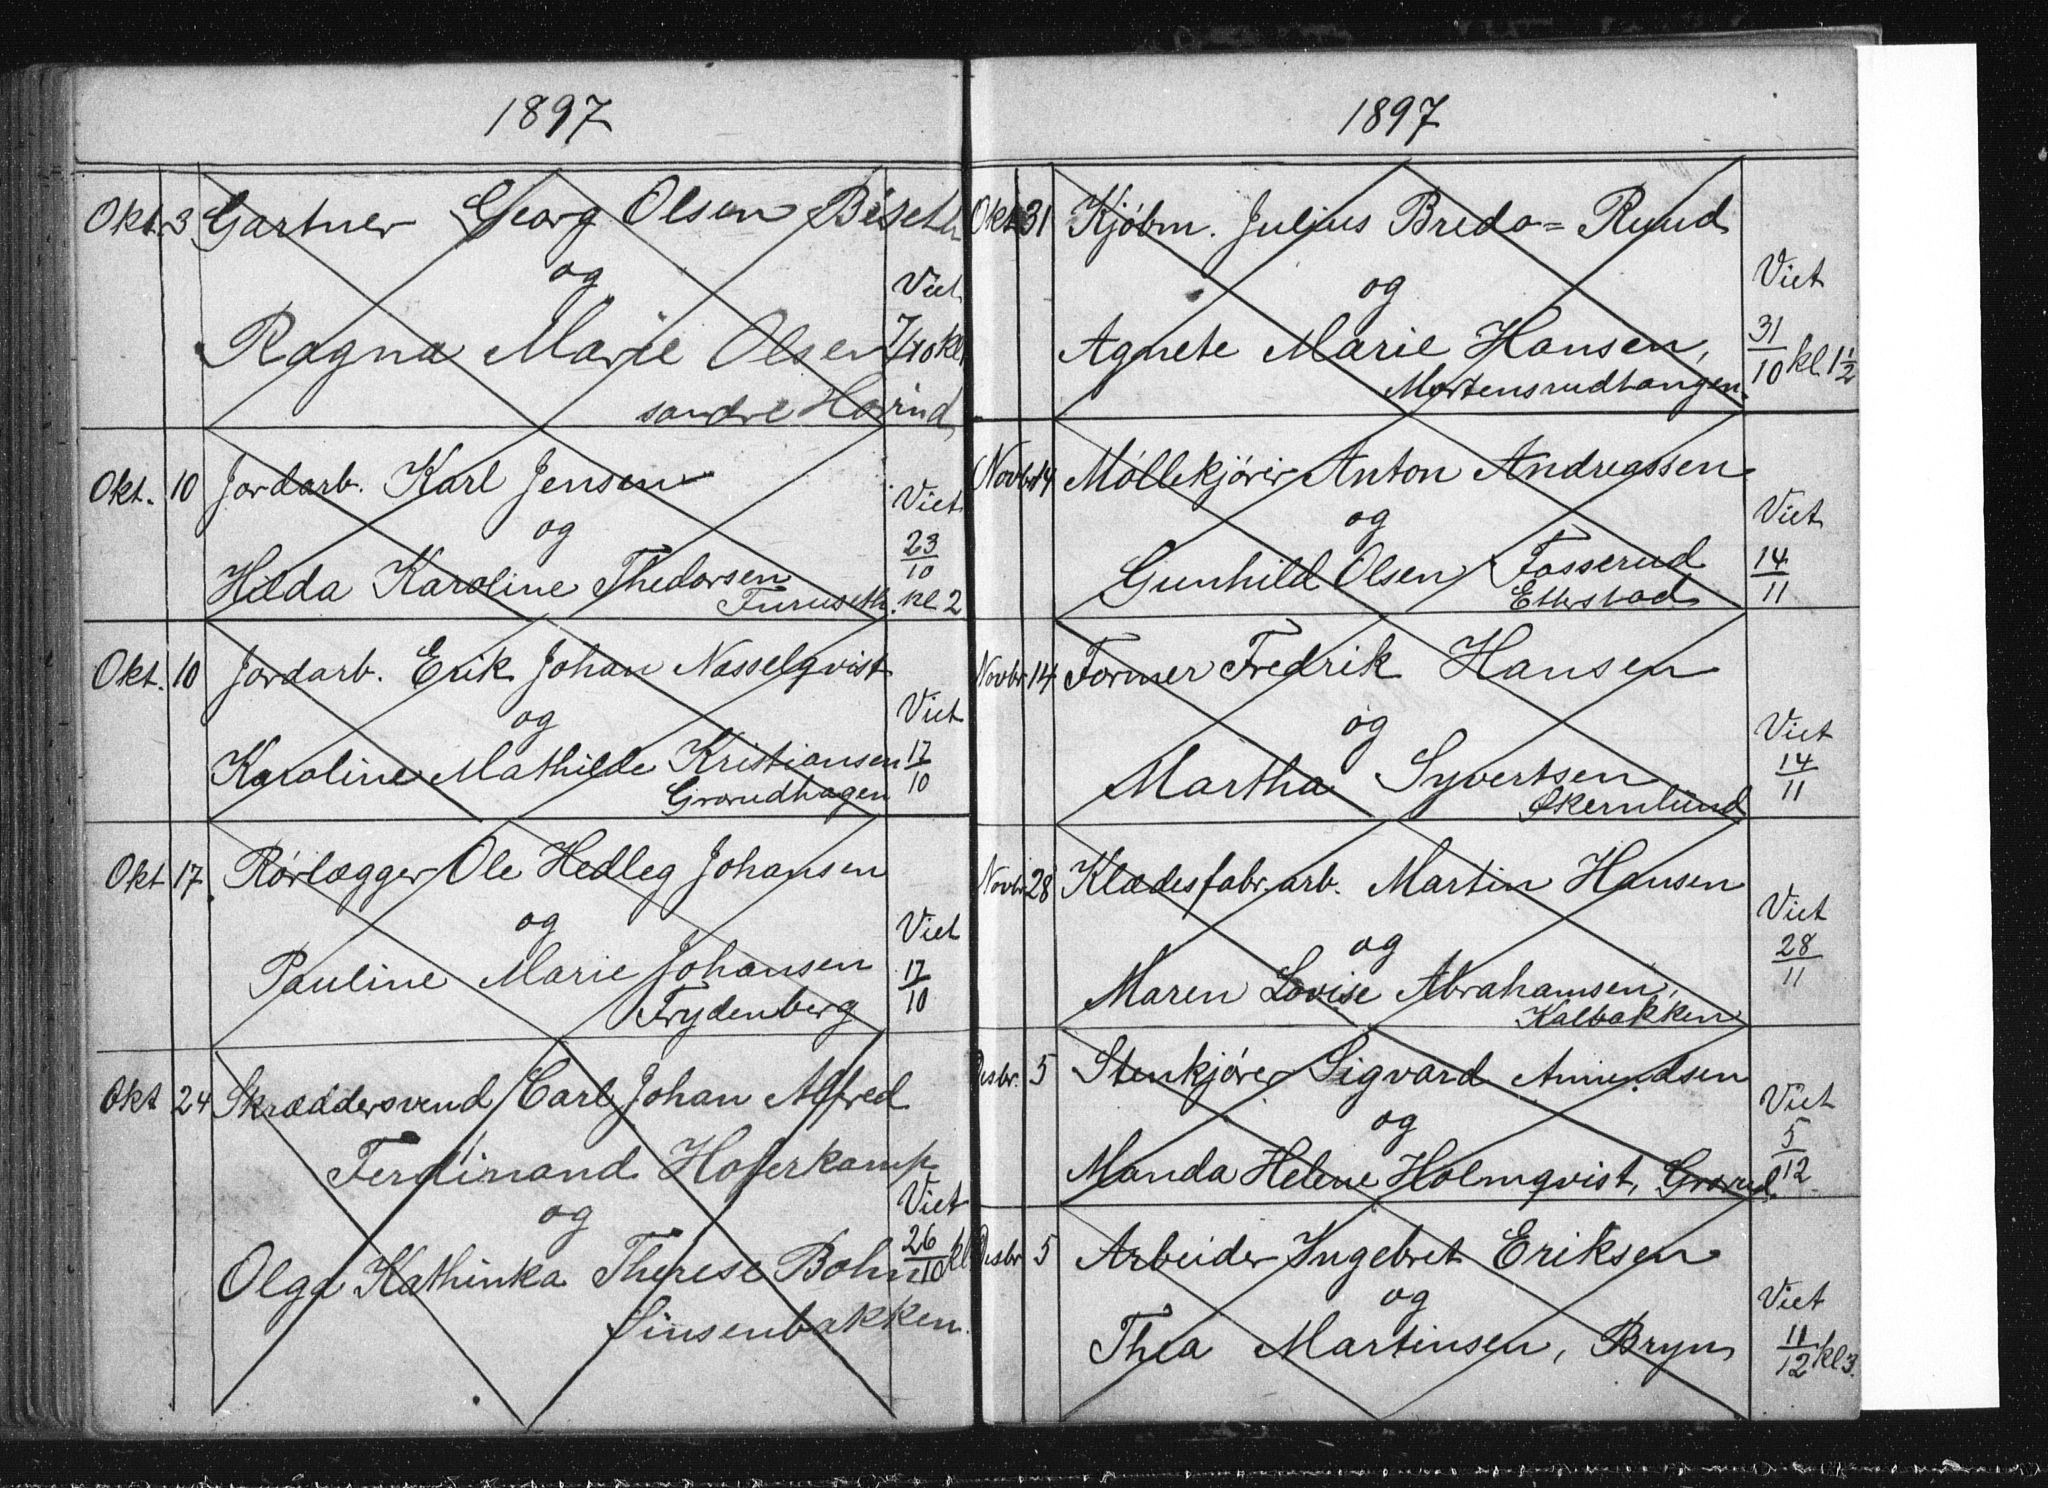 1897
Okt. 3 Gartner Georg Olsen Biseth
og
Viet
Ragna Marie Olsen 7/10 kl
søndre Hovind
Okt. 10 Jordarb. Karl Jensen
og
Viet
23/10
Hilda Karoline Thedorsen
Furuseth. kl 2
Okt. 10 Jordarb. Erik Johan Nasselqvist
og
Viet
Karoline Mathilde Kristiansen 17/10
Grorudhagen
Okt 17 Rørlægger Ole Hedleg Johansen
og
Viet
Pauline Marie Johansen 17/10
Frydenberg
Okt 24 Skræddersvend Carl Johan Alfred
Ferdinand Hoferkamp
Viet
og
26/10 kl
Olga Kathinka Therese Bohn
Sinsenbakken
1897
Okt 31 Kjøbm. Julius Bredo=Ruud
og
Viet
Agnete Marie Hansen, 31/10 kl. 1½
Mortensrudtangen.
Novbr 14 Møllekjører Anton Andreassen
og
Viet
Gunhild Olsen Fosserud 14/11
Etterstad
Novbr 14 Former Fredrik Hansen
og
Viet
14/11
Martha Syvertsen
Økernlund
Novbr 28 Klædesfabr.arb. Martin Hansen
Viet
og
28/11
Maren Lovise Abrahamsen,
Kalbakken
Desbr. 5 Stenkjører Sigvard Amundsen
Viet
og
5/12
Manda Helene Holmqvist, Grorud.
Desbr 5 Arbeider Ingebret Eriksen
og
Viet
Thea Martinsen, Bryn 11/12 kl 3.